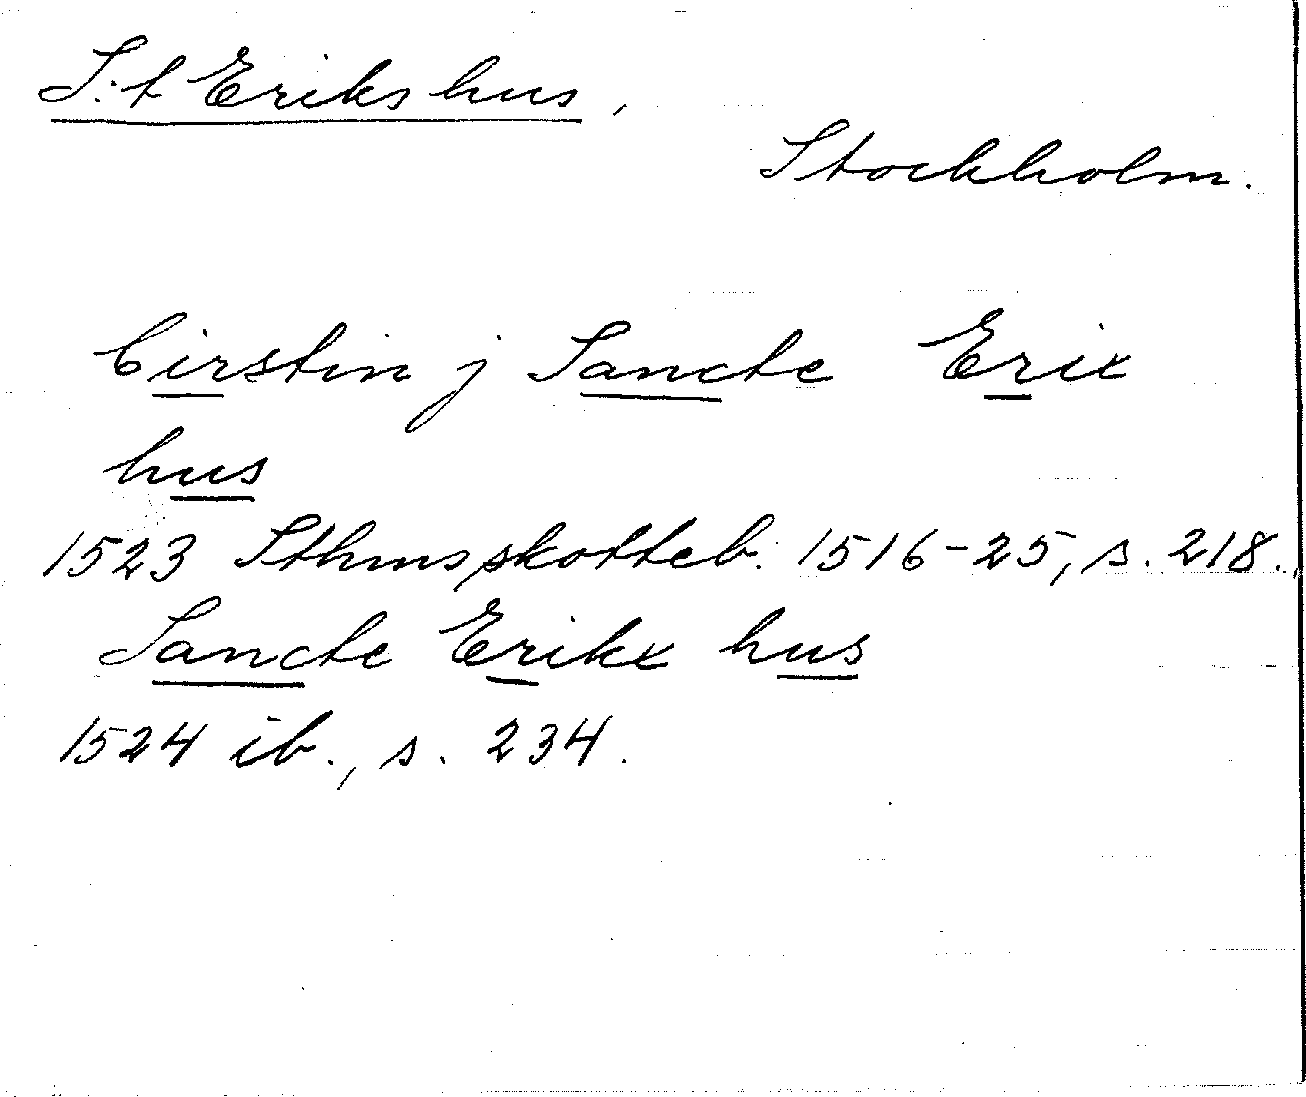 S:t Eriks hus,
Stockholm.
Cirstin j Sancte Erix
hus
1523 Sthms skotteb. 1516-25, s. 218.,
Sancte Erikx hus
1524 ib., s. 234.